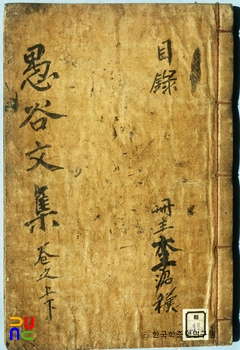 目錄
冊主
愚谷文集 卷之上下
© 한국학중앙연구원